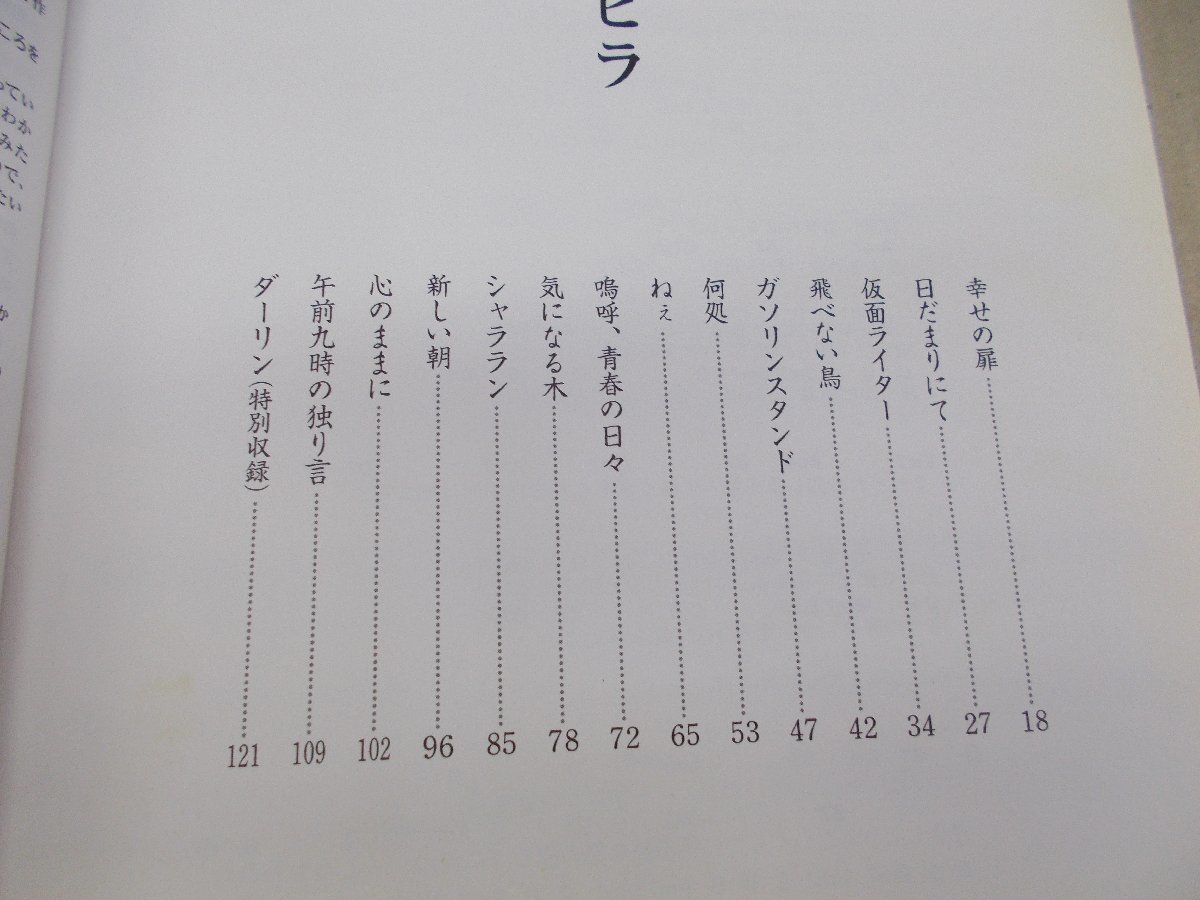 ヒラ
幸せの扉 18
日だまりにて 27
仮面ライター 34
飛べない鳥 42
ガソリンスタンド 47
何処 53
ねぇ 65
嗚呼、青春の日々 72
気になる木 78
シャララン 85
新しい朝 96
心のままに 102
午前九時の独り言 109
ダーリン(特別収録) 121
ころを
ってい
わか
みた
で、
たい